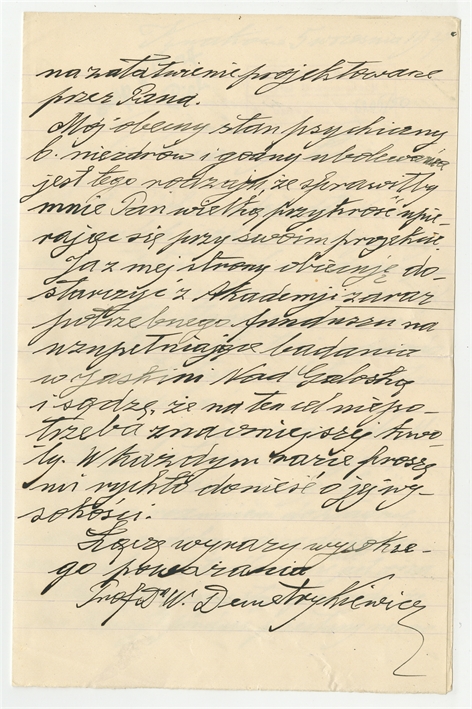 na załatwienie projektowane
przez Pana.
Mój obecny stan psychiczny
b. niezdrów i godny ubolewania
jest tego rodzaju, że sprawiłby
mnie Pan wielką przykrość upie-
rając się przy swoim projekcie.
Ja z mej strony obiecuję do-
starczyć z Akademji zaraz
potrzebnego funduszu na
uzupełniające badania
w Jaskini Nad Galoską
i sądzę, że na ten cel niepo-
trzeba znaczniejszej kwo-
ty. W każdym razie proszę
mi rychło donieść o jej wy-
sokości.
Łączę wyrazy wysokie-
go poważania
Prof. Dr W. Demetrykiewicz